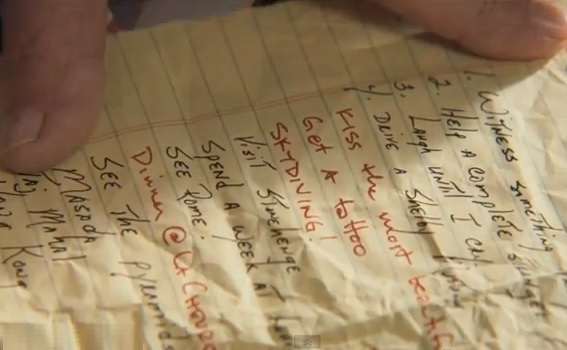 1. Witness something
2. Help a complete stranger
3. Laugh until I cry
4. Drive a Shelby
Kiss the most beautiful
Get A tattoo
SKYDIVING!
Visit Stonehenge
Spend A week at the
See Rome.
Dinner @ La
See The Pyramids
MASADA
Taj Mahal
Hong Kong